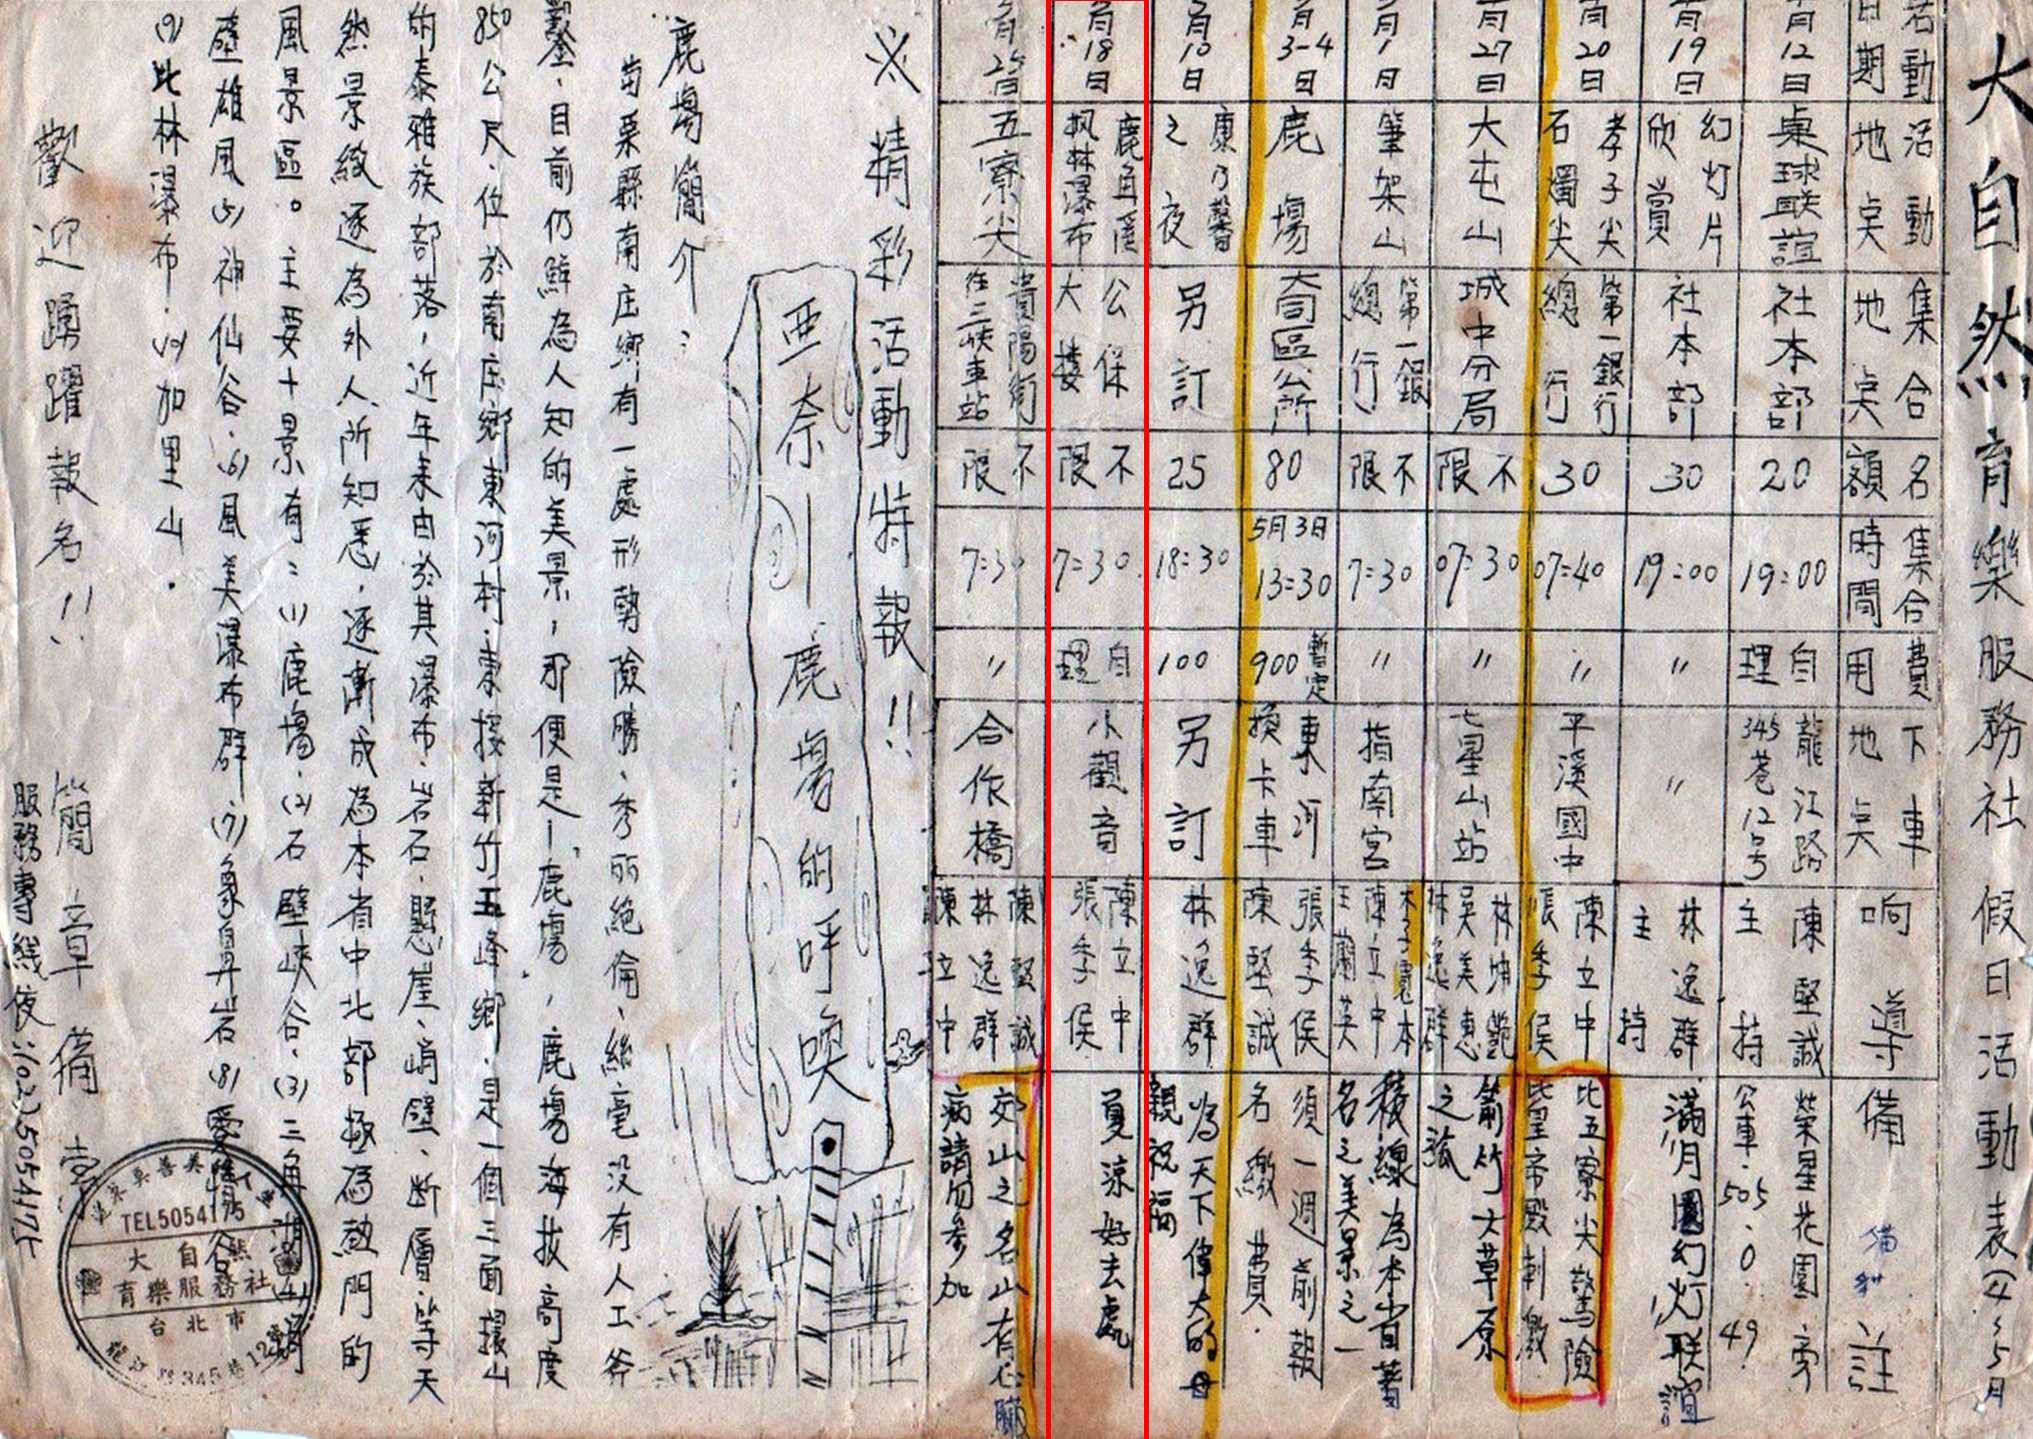 大自然育樂服務社假日活動表(4、5月
活動日期
活動地点
集合地点
名額
集合時間
費用
下車地点
响導
備註
月12日
桌球联誼
社本部
20
19:00
自理
龍江路345巷12号
陳堅誠主持
榮星花園旁
公車:505.0.49
月19日
幻灯片欣賞
社本部
30
19:00
〃
〃
林逸群主持
滿月圍幻灯联誼
月20日
孝子尖
石燭尖
第一銀行總行
30
07:40
〃
平溪國中
陳立中
張季侯
比五寮尖驚險
比皇帝殿刺激
月27日
大屯山
城中分局
不限
07:30
〃
七星山站
吳美惠
林逸群
箭竹大草原
月1日
筆架山
第一銀行總行
不限
7:30
〃
指南宮
陳立中
王蘭英
稜線為本省著名之美景之一
月3-4日
鹿場
80
5月3日
13:30
暫定
900
東河換卡車
張季侯
陳堅誠
須一週前報名繳費.
月10日
康乃馨之夜
另訂
25
18:30
100
另訂
林逸群
為天下偉大的母親祝福
月18日
鹿角溪
枫林瀑布
公保大樓
不限
7:30.
自理
小觀音
陳立中
張季侯
夏涼好去處
五寮尖
貴陽街
往三峽車站
不限
7:30
〃
合作橋
陳堅誠
林逸群
陳立中
郊山之名山有心臟病請勿參加
※精彩活動特報!!
亞奈川鹿場的呼喚
鹿場簡介:
苗栗縣南庄鄉有一處形勢險勝、秀丽絕倫、絲毫没有人工斧
鑿、目前仍鮮為人知的美景,那便是一鹿場,鹿場海拔高度
850公尺、位於南庄鄉東河村.東接新竹五峰鄉.是一個三面環山
的泰雅族部落,近年来由於其瀑布、岩石、懸崖、峭壁、断層等天
然景緻逐為外人所知悉,逐漸成為本省中北部極為熱門的
風景區。主要十景有:(1)鹿場.(2)石壁峽谷.(3)三角湖(4)
壁雄風(5)神仙谷.(6)風美瀑布群(7)象鼻岩(8)
(9)比林瀑布.(10)加里山.
歡迎踴躍報名!!
簡章備索
服務專线夜:(02)5054175
TEL5054175
大自然
育樂服務社
台北市
龍江路345巷12号